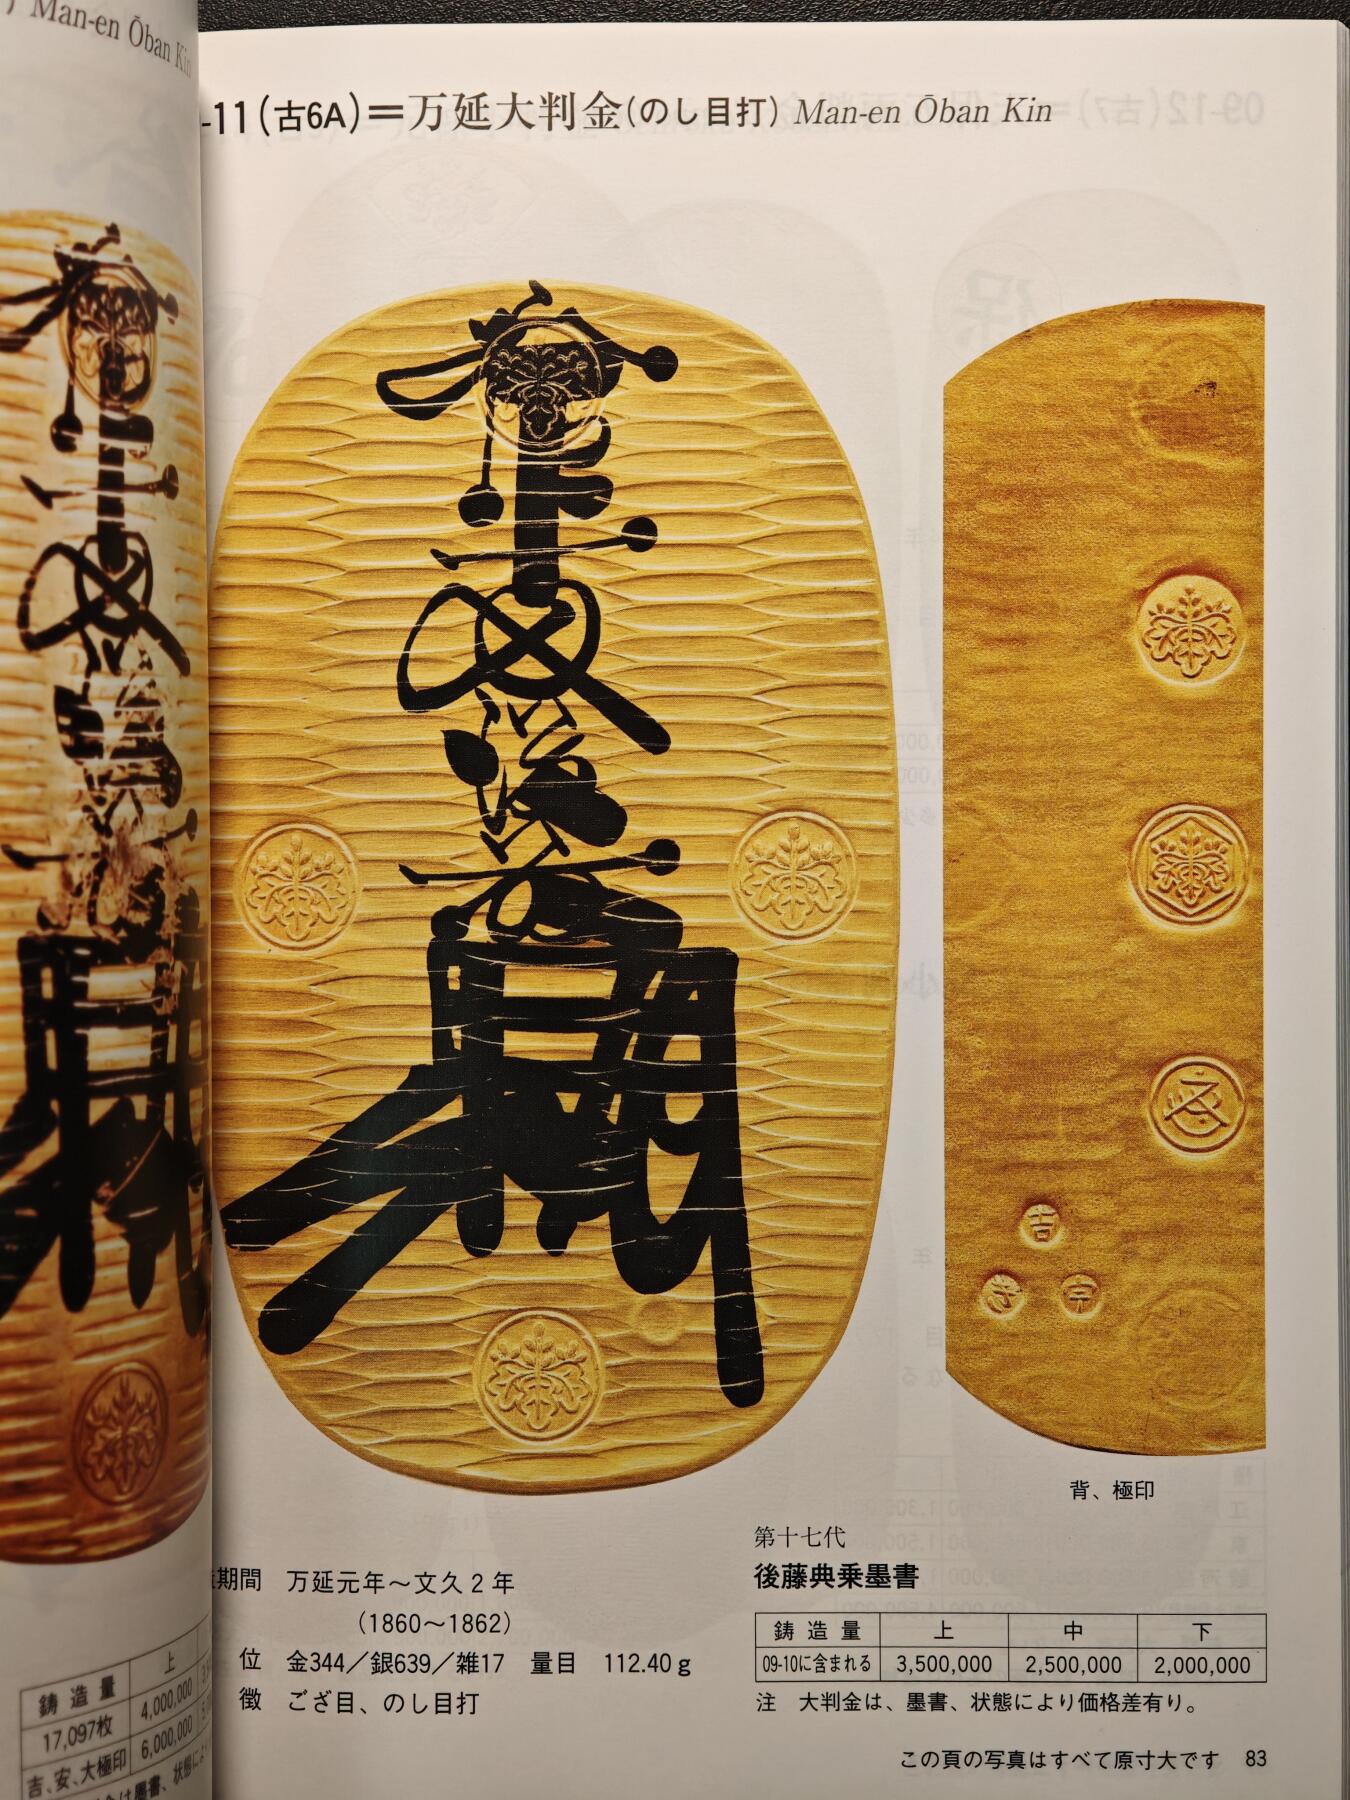 Man-en Ōban Kin
鋳造量 上
17,097枚 4,000,000
吉、安、大極印 6,000,000
-11(古6A)=万延大判金(のし目打) Man-en Ōban Kin
背、極印
吉
宇
期間 万延元年~文久2年
(1860~1862)
位 金344/銀639/雑17 量目 112.40g
徴 ござ目、のし目打
第十七代
後藤典乗墨書
鋳造量 上 中 下
09-10に含まれる 3,500,000 2,500,000 2,000,000
注 大判金は、墨書、状態により価格差有り。
この頁の写真はすべて原寸大です 83